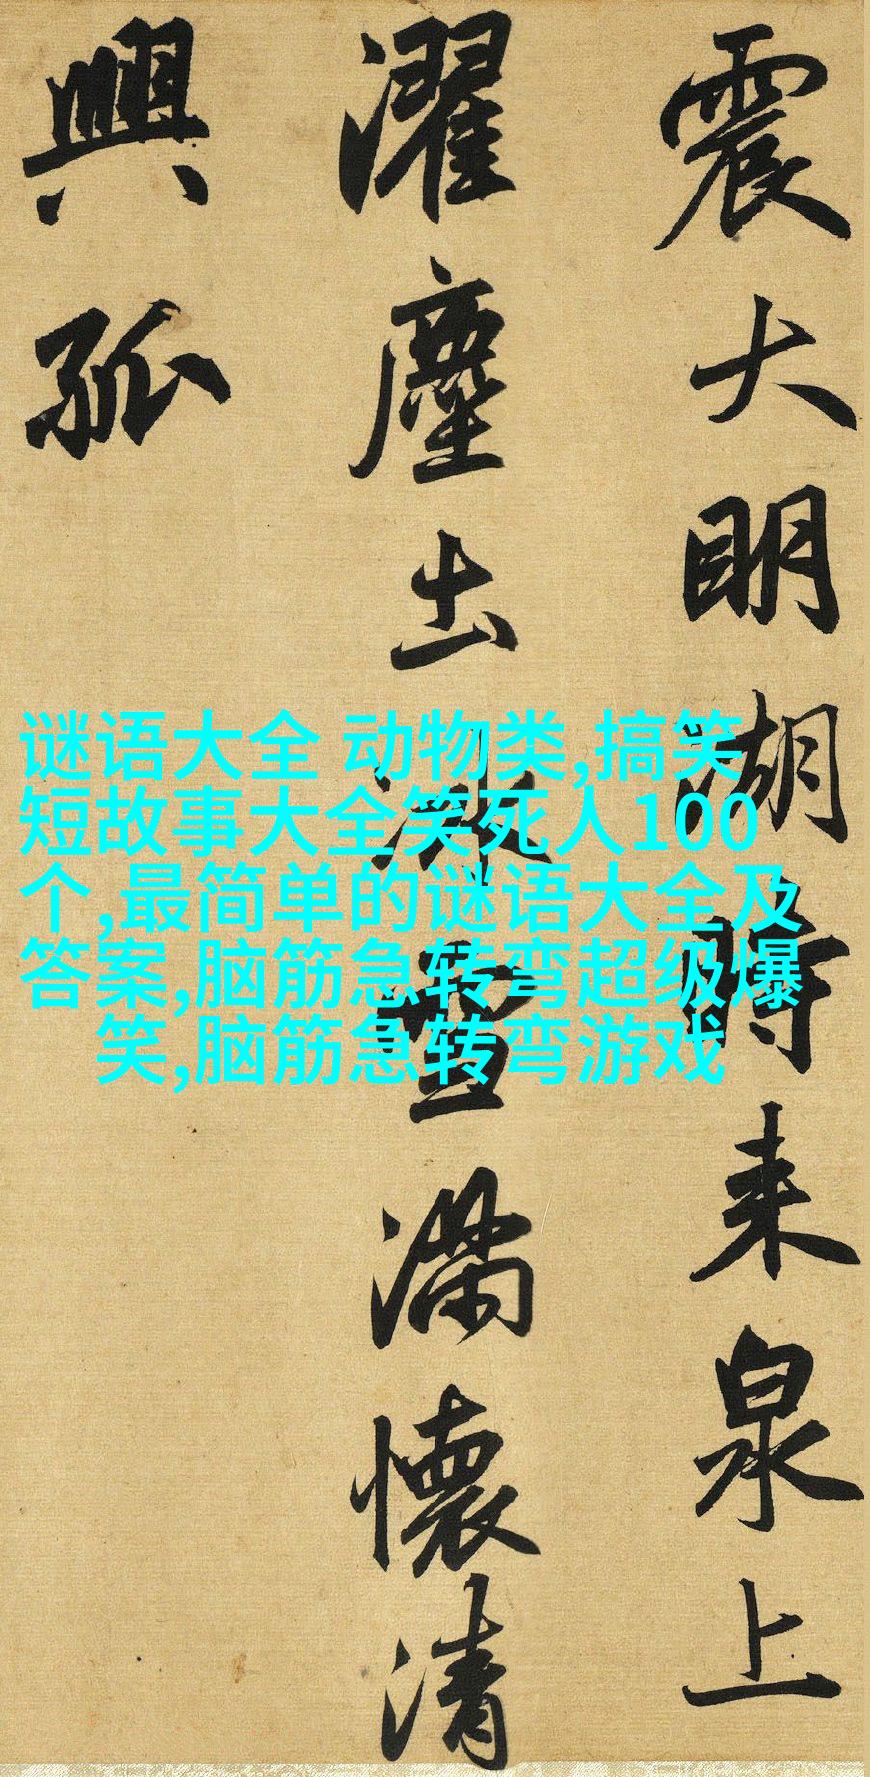 震大明湖時来泉上
濯塵出冰雪满懷清
興孤
谜语大全 动物类,搞笑
短故事大全笑死人100
个,最简单的谜语大全及
答案,脑筋急转弯超级爆
笑,脑筋急转弯游戏